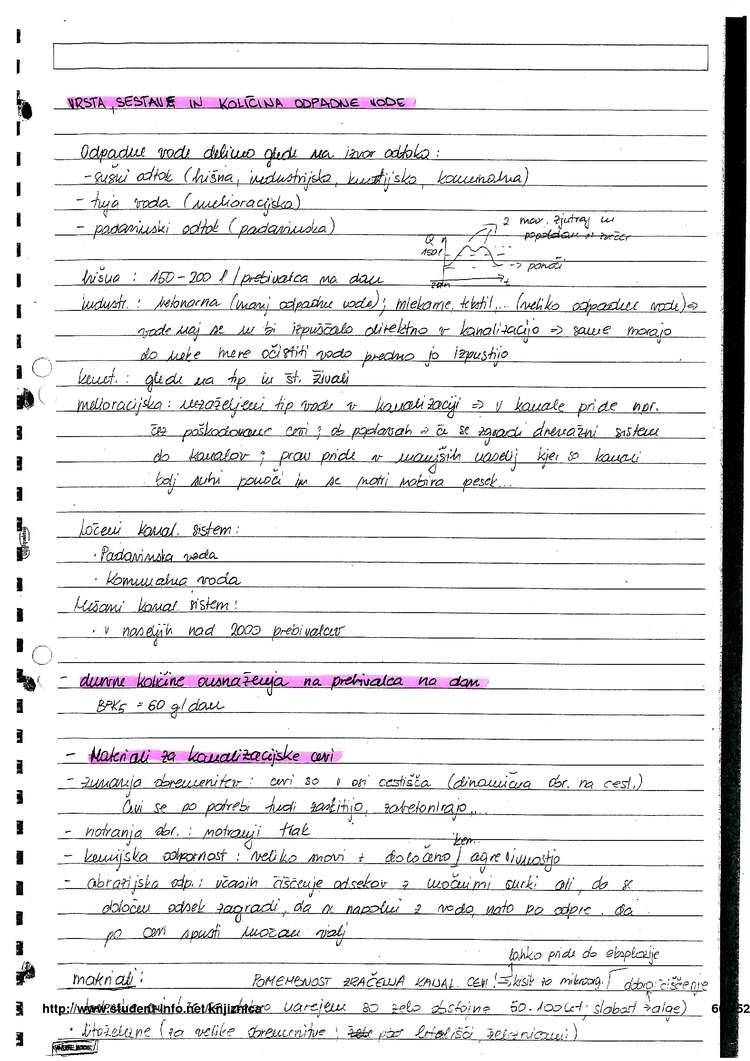 VRSTA, SESTAVE IN KOLIČINA ODPADNE VODE
Odpadne vode delimo glede na izvor odtoka:
- sušni odtok (hišna, industrijska, kmetijska, komunalna)
- tuja voda (melioracijska)
- padavinski odtok (padavinska)
2 max. zjutraj in
popoldan in zvečer
Q
150 l
→ ponoči
24h
t
hišna : 150-200 l / prebivalca na dan
industr. : (manj odpadne vode); mlekarne, tekstil,... (veliko odpadne vode) ⇒
vode naj se ne bi izpuščalo direktno v kanalizacijo ⇒ same morajo
do neke mere očistiti vodo predno jo izpustijo
kmet. : glede na tip in št. živali
melioracijska : nezaželjeni tip vode v kanalizaciji ⇒ v kanale pride npr.
čez poškodovane cevi ; ob poplavah ⇒ če se zgradi drenažni sistem
do kanalov ; prav pride v manjših naselij kjer so kanali
bolj suhi ponoči in se notri nabira pesek...
Ločeni kanal. sistem:
· Padavinska voda
· Komunalna voda
Mešani kanal sistem:
· v naseljih nad 2000 prebivalcev
- dnevne količine onesnaženja na prebivalca na dan
BPK5 = 60 g/dan
- Materiali za kanalizacijske cevi
- zunanja obremenitev : cevi so v osi cestišča (dinamična obr. na cest.)
Cevi se po potrebi tudi zaščitijo, zabetonirajo,...
- notranja obr. : notranji tlak
kem.
- kemijska odpornost : veliko snovi z določeno agresivnostjo
- abrazijska odp. : včasih čiščenje odsekov z močnimi curki ali, da se
določen odsek zagradi, da se napolni z vodo, nato pa odpre, da
po cevi spusti močan val
lahko pride do eksplozije
materiali : POMEMBNOST ZRAČENJA KANAL. CEVI ! ⇒ kisik za mikroorg. dobro čiščenje
http://www.student-info.net/knjiznica
dobro varjene so zelo obstojne 50-100 let; slabost alge)
· litoželezne (za velike obremenitve ; pod letališči železnicami)